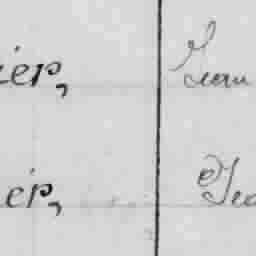 ier, Jean
ier, Jea